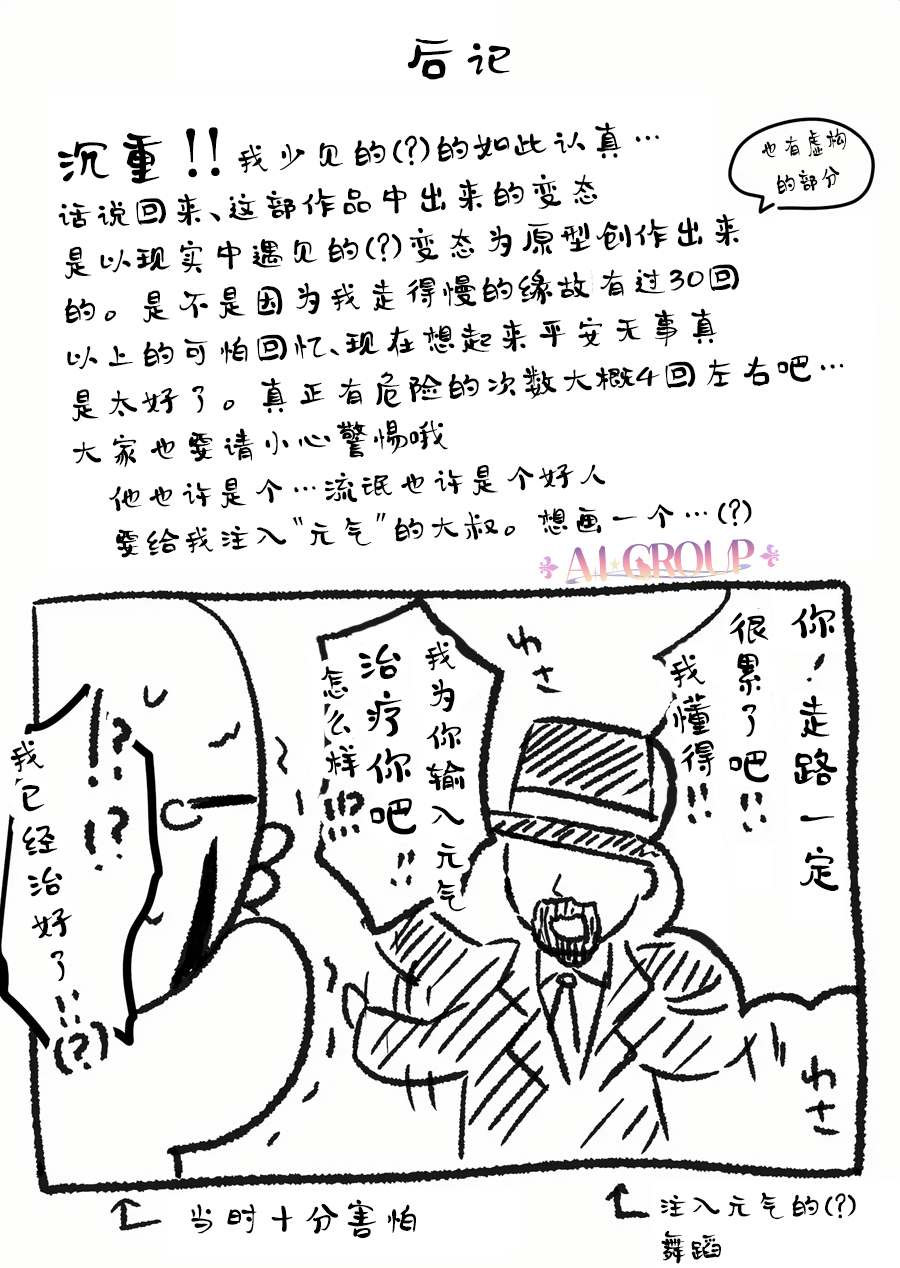 后记
沉重!!我少见的(?)的如此认真…
也有虚构
的部分
话说回来、这部作品中出来的变态
是以现实中遇见的(?)变态为原型创作出来
的。是不是因为我走得慢的缘故有过30回
以上的可怕回忆、现在想起来平安无事真
是太好了。真正有危险的次数大概4回左右吧…
大家也要请小心警惕哦
他也许是个…流氓也许是个好人
要给我注入“元气”的大叔。想画一个…(?)
A.I★GROUP
你!走路一定
很累了吧!!
我懂得!!
わさ
我为你输入元气
治疗你吧!!
怎么样!!!?
!?
!!
!?
我已经治好了!!(?)
わさ
当时十分害怕
注入元气的(?)
舞蹈